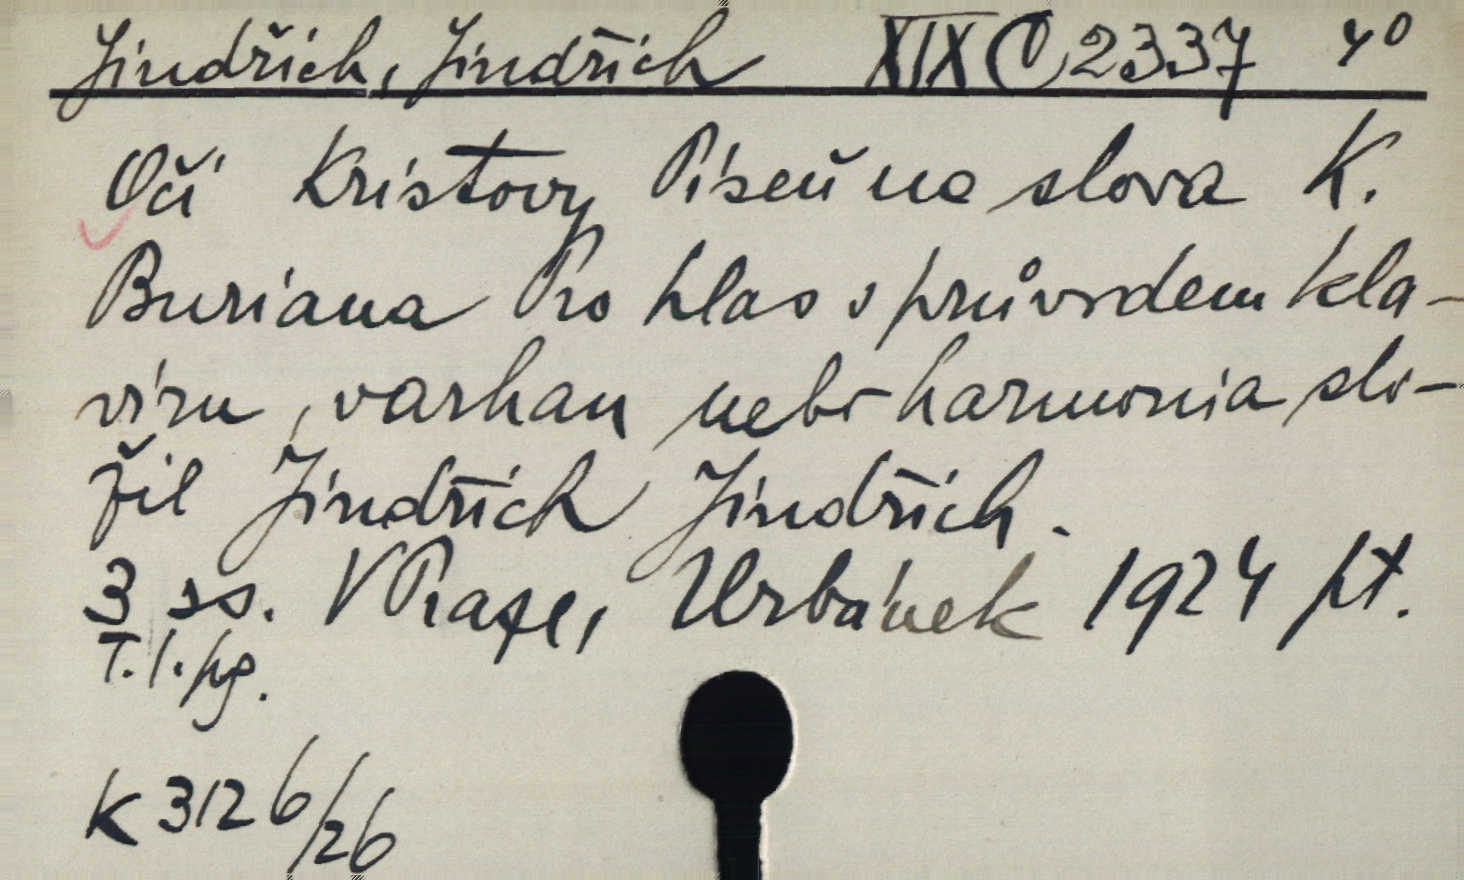 Jindřich, Jindřich XIX C 2337 4°
Oči Kristovy Píseň na slova K.
Buriana Pro hlas s průvodem kla-
víru, varhan nebo harmonia slo-
žil Jindřich Jindřich.
3 ss. V Praze, Urbánek 1924 pt.
T. 1. pg.
K 3126/26